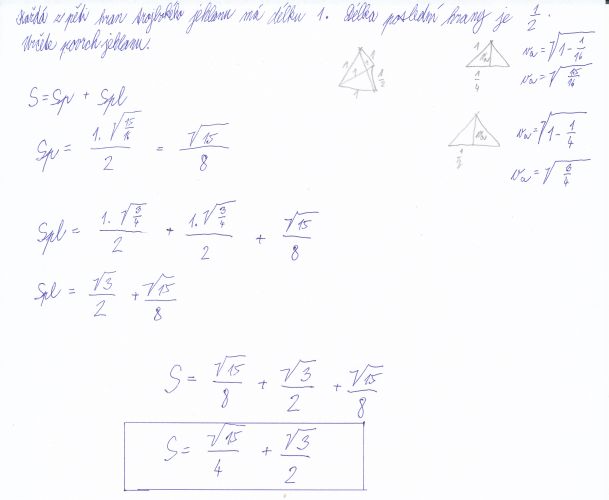 Každá z pěti hran trojbokého jehlanu má délku 1. Délka poslední hrany je 1/2.
Určete povrch jehlanu.
1 1 1 1 1/2 1
1/4 va va = √(1 - 1/16)
va = √(15/16)
S = Sp + Spl
Sp = (1·√(15/16))/2 = √15/8
1/2 va va = √(1 - 1/4)
va = √(3/4)
Spl = (1·√(3/4))/2 + (1·√(3/4))/2 + √15/8
Spl = √3/2 + √15/8
S = √15/8 + √3/2 + √15/8
S = √15/4 + √3/2